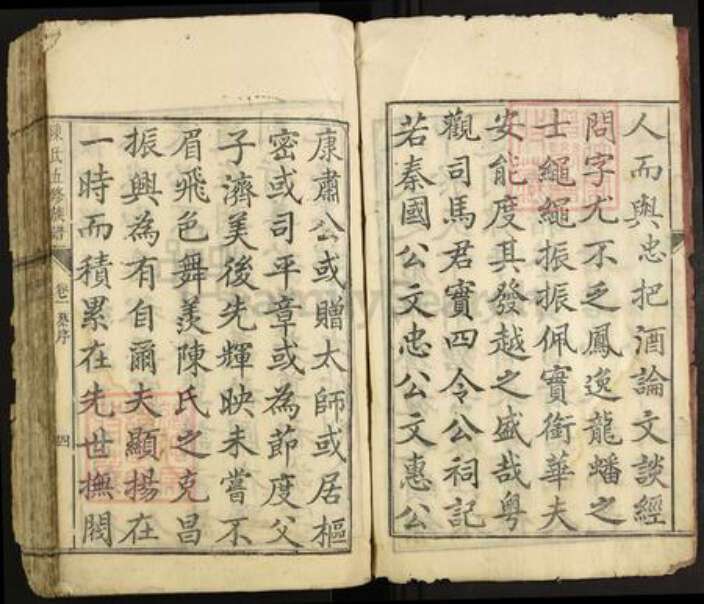 人而與忠把酒論文談經
問字尤不乏鳳逸龍蟠之
士繩繩振振佩實銜華夫
安能度其發越之盛哉粵
觀司馬君實四令公祠記
若秦國公文忠公文惠公
康肅公或贈太師或居樞
密或司平章或為節度父
子濟美後先輝映未嘗不
眉飛色舞羨陳氏之克昌
振興為有自爾夫顯揚在
一時而積累在先世撫閥
陳氏五修族譜
卷一
序
四